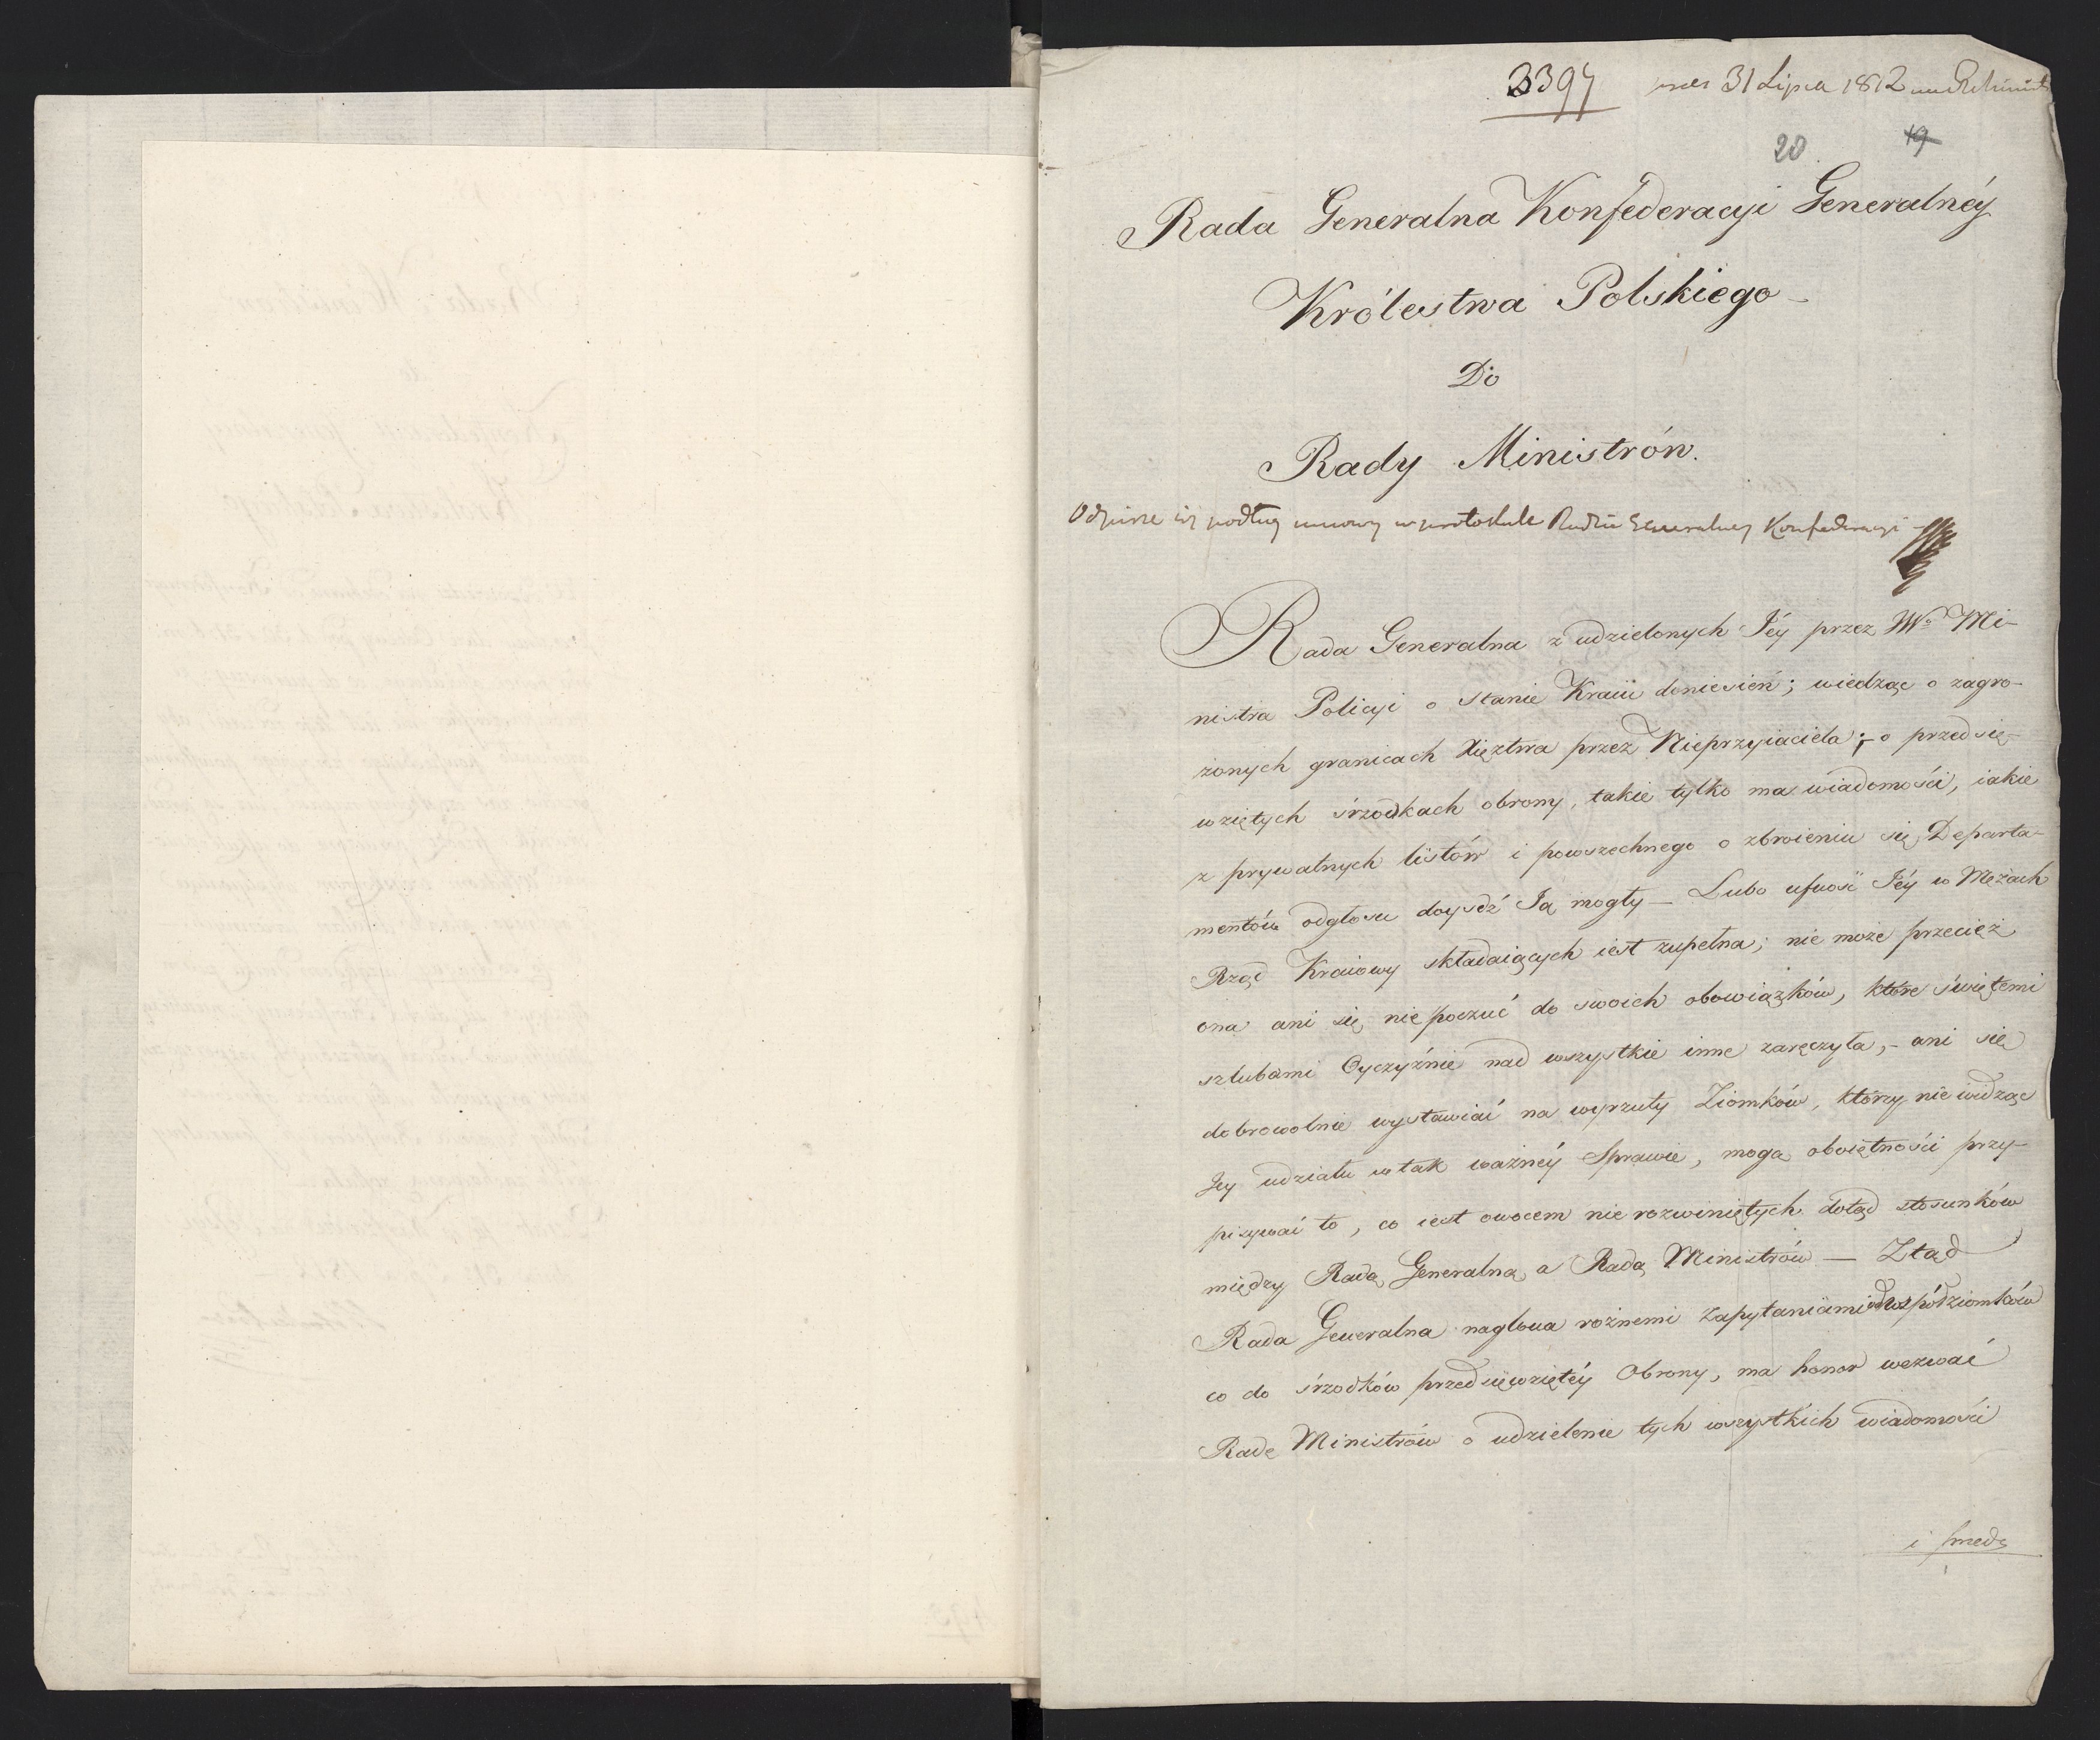 3394 31 Lipca 1812
20 19
Rada Generalna Konfederacyi Generalnéy
Królestwa Polskiego –
Do
Rady Ministrów.
Odpisze się podług umowy w protokule Radzie Generalney Konfederacyi –
Rada Generalna z udzielonych Jéy przez W° Mi-
nistra Policyi o stanie Kraiu doniesień; wiedząc o zagro-
żonych granicach Xięztwa przez Nieprzyiaciela; – o przedsię-
wziętych śrzodkach obrony, takie tylko ma wiadomości, iakie
z prywatnych listów i powszechnego o zbroieniu się Departa-
mentów odgłosu doyśdź Ją mogły — Lubo ufność Jéy w Mężach
Rząd Kraiowy składaiących iest zupełna; nie może przecież
ona ani się nie poczuć do swoich obowiązków, które świętemi
szlubami Oyczyźnie nad wszystkie inne zaręczyła, – ani się
dobrowolnie wystawiać na wyrzuty Ziomków, którzy nie widząc
Jey udziału w tak ważnéy Sprawie, mogą oboiętności przy-
pisywać to, co iest owocem nie rozwiniętych dotąd stosunków
między Radą Generalną a Radą Ministrów — Ztąd
Rada Generalna naglona rożnemi zapytaniami od współziomków
co do śrzodków przedsięwziętéy Obrony, ma honor wezwać
Radę Ministrów o udzielenie tych wszystkich wiadomości
i przeds